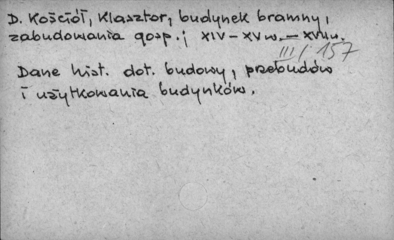 D. Kościół, Klasztor, budynek bramny,
zabudowania gosp.; XIV – XV w. – XVII w.
III/157
Dane hist. dot. budowy, przebudów
i użytkowania budynków.